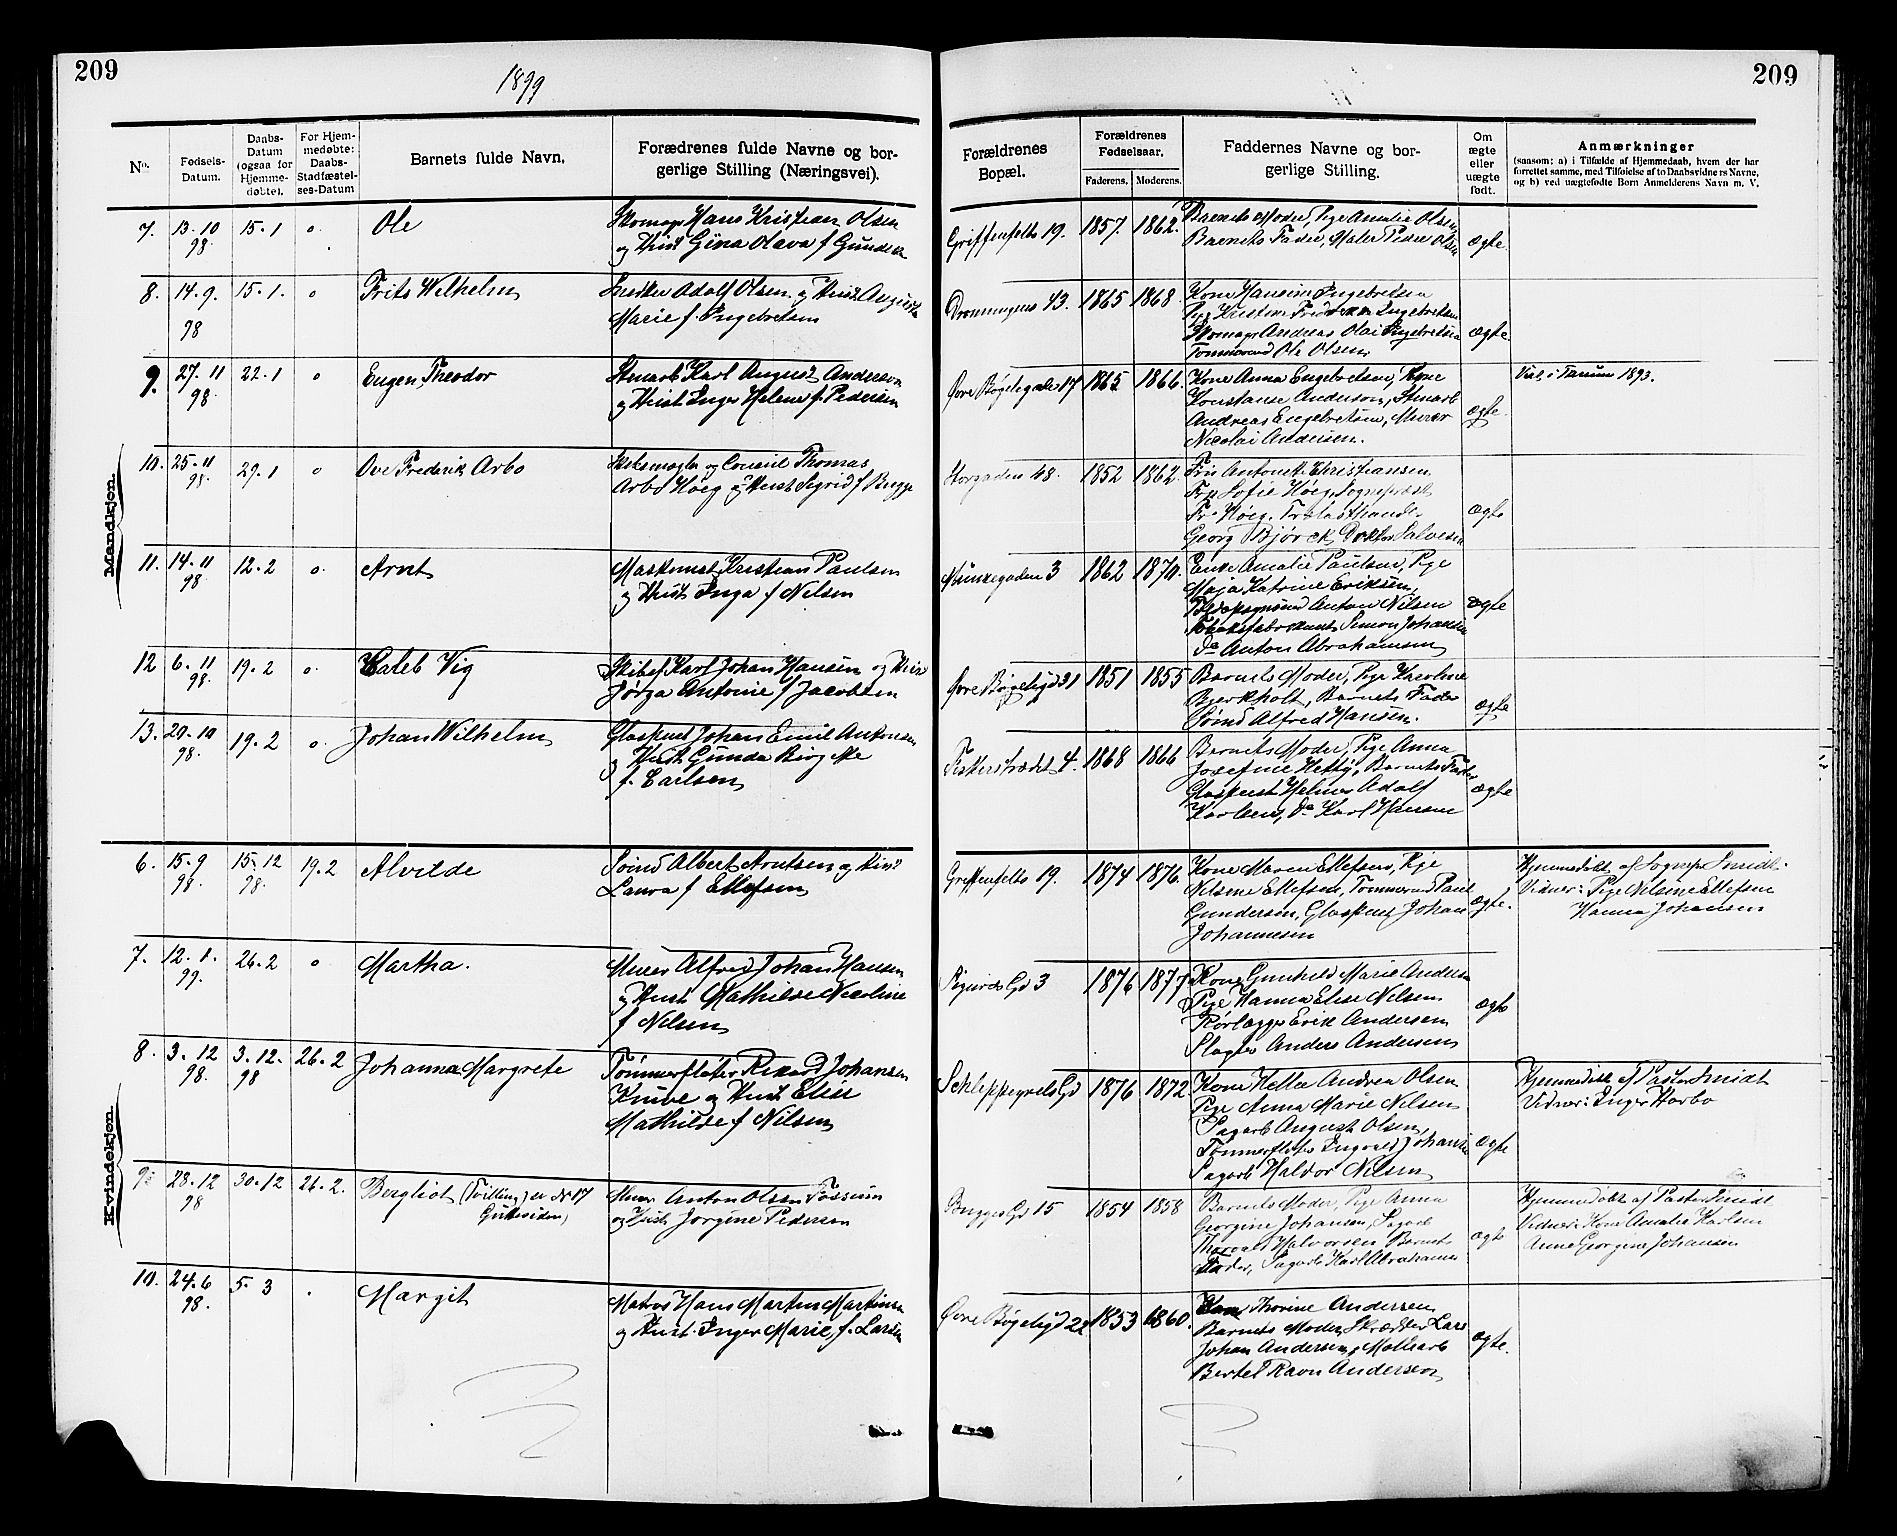 209
1899
209
No.
Fødsels-Datum.
Daabs-Datum (ogsaa for Hjemme-døbte).
For Hjem-medøbte: Daabs-Stadfæstel-ses-Datum
Barnets fulde Navn.
Forædrenes fulde Navne og bor-gerlige Stilling (Næringsvei).
Forældrenes Bopæl.
Forældrenes Fødselsaar.
Faderens.
Moderens.
Faddernes Navne og bor-gerlige Stilling.
Om ægte eller uægte født.
Anmærkninger
(saasom: a) i Tilfælde af Hjemmedaab, hvem der har
forrettet samme, med Tilføielse af to Daabsvidners Navne,
og b) ved uægtefødte Børn Anmelderens Navn m. V.
Mandkjøn.
7. 13-10 98. 15-1 o. Ole
Skomagr Hans Kristian Olsen
og Hust Gina Olava f Gundersen
Griffenfelts 19. 1857. 1862.
Barnets Moder, Pige Amalie Olsen
Barnets Fader, Maler Peder Olsen
ægte
8. 14-9. 98 15-1. o Frits Wilhelm
Snedker Adolf Olsen og Hust Augusta
Marie f. Ingebretsen
Dronningens 43. 1865 1868.
Kone Hansine Ingebretsen
Pige Kristine Fredrikke Ingebretsen
Skomagr Andreas Olai Ingebretsen
Tømmermd Ole Olsen
ægte
9. 27-11 98. 22-1 o Eugen Theodor
Stenarb Karl August Anderson
og Hust Inger Helene f. Pedersen
Øvre Bøgelygade 17 1865 1866.
Kone Anna Engebretsen, Kone
Konstanse Anderson, Stenarb
Andreas Engebretsen, Murer
Nicolai Andersen.
ægte
Viet i Tanum 1893.
10. 25-11 98. 29-1 o Ove Frederik Arbo
Skibsmægler og Consul Thomas
Arbo Høeg og Hust Sigrid f Bugge
Storgaden 48. 1852 1862.
Fru Antonette Christiansen
Frk Sofie Høeg, Sognepræst
Fr. Høeg. Trælasthandl.
Georg Bjørck, Doktor Salvesen
ægte
11. 14-11 98 12-2 o. Arnt
Maskinist Kristian Paulsen
og Hust Inga f Nilsen
Munkegaden 3 1862 1870.
Enke Amalie Paulsen, Pige
Maja Katrine Eriksen,
Anton Nilsen
Tobaksfabrikant Simon Johansen
do Anton Abrahamsen
ægte
12 6-11 98. 19-2 o. Caleb Vig
Skibsf. Karl Johan Hansen og Hust
Jørga Antonie f Jacobsen
Øvre Bøgeligd 31 1851 1855
Barnets Moder, Pige Karoline
Bjerkholt, Barnets Fader
Sømd Alfred Hansen.
ægte
13. 29-10 98. 19-2 o. Johan Wilhelm
Glaspust Johan Emil Antonsen
og Hust Gunda Birgitte
f. Carlsen
Fiskerstrædet 4. 1868 1866
Barnets Moder, Pige Anna
Josefine Hetty, Barnets Fader
Glaspust Helmer Adolf
Karlsen, do Karl Hansen
ægte
Kvindekjøn.
6. 15-9 98. 15-12 98. 19-2 Alvilde
Sømd Albert Arntsen og Hust
Laura f Ellefsen
Griffenfelts 19. 1874 1876.
Kone Maren Ellefsen, Pige
Nilsine Ellefsen, Tømmermd Paul
Gundersen, Glaspust Johan
Johannesen
ægte.
Hjemmedøbt af Sognepr Smidt.
Vidner: Pige Nilsine Ellefsen
Hanna Johansen
7. 12-1. 99. 26-2 o Martha.
Murer Alfred Johan Hansen
og Hust Mathilde Nicoline
f Nilsen
Sigurds Gd 3 1876 1877
Kone Gunhild Marie Andersen
Pige Hanna Elise Nilsen
Rørlægger Erik Andersen
Slagter Anders Andersen
ægte
8. 3-12 98. 3-12. 98 26-2 Johanna Margrete
Tømmerfløter Rikard Johansen
Knive og Hust Elise
Mathilde f Nilsen
SchleppegrelsGd 1876 1872
Kone Helle Andrea Olsen
Pige Anna Marie Nilsen
Sagarb August Olsen,
Tømmerfløter Ingvald Johansen
Sagarb Haldor Nilsen
ægte
Hjemmedøbt af Pastor Smidt
Vidner: Inger Horbo
9. 28-12 98 30-12 26-2. Bergliot (Tvilling) er No 17
Guttesiden)
Murer Anton Olsen Fossum
og Hust Jørgine Pedersen
BuggesGd 15 1854 1858
Barnets Moder, Pige Anna
Georgine Johansen, Sagarb
Thorvald Halvorsen Barnets
Fader, Sagarb Karl Abrahamsen
ægte
Hjemmedøbt af Pastor Smidt
Vidner: Kone Amalie Karlsen
Anne Georgine Johansen
10. 24-6 98. 5-3 . Margit
Matros Hans Martin Martinsen
og Hust. Inger Marie, f. Larsen
Øvre Bøgeligd 22 1853 1860.
Kone Thorine Andersen
Barnets Moder, Skrædder Lars
Johan Andersen, Møllearb
Bertel Ravn Anderssen
ægte.